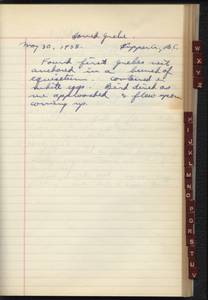 Horned Grebe
May 30, 1938.
Found first grebe nest
anchored in a bunch of
equisetum. contained 2
white eggs. Bird dived as
we approached & flew upon
coming up.
W
X
Y
Z
I
J
K
L
M
N
O
P
Q
R
S
T
U
V